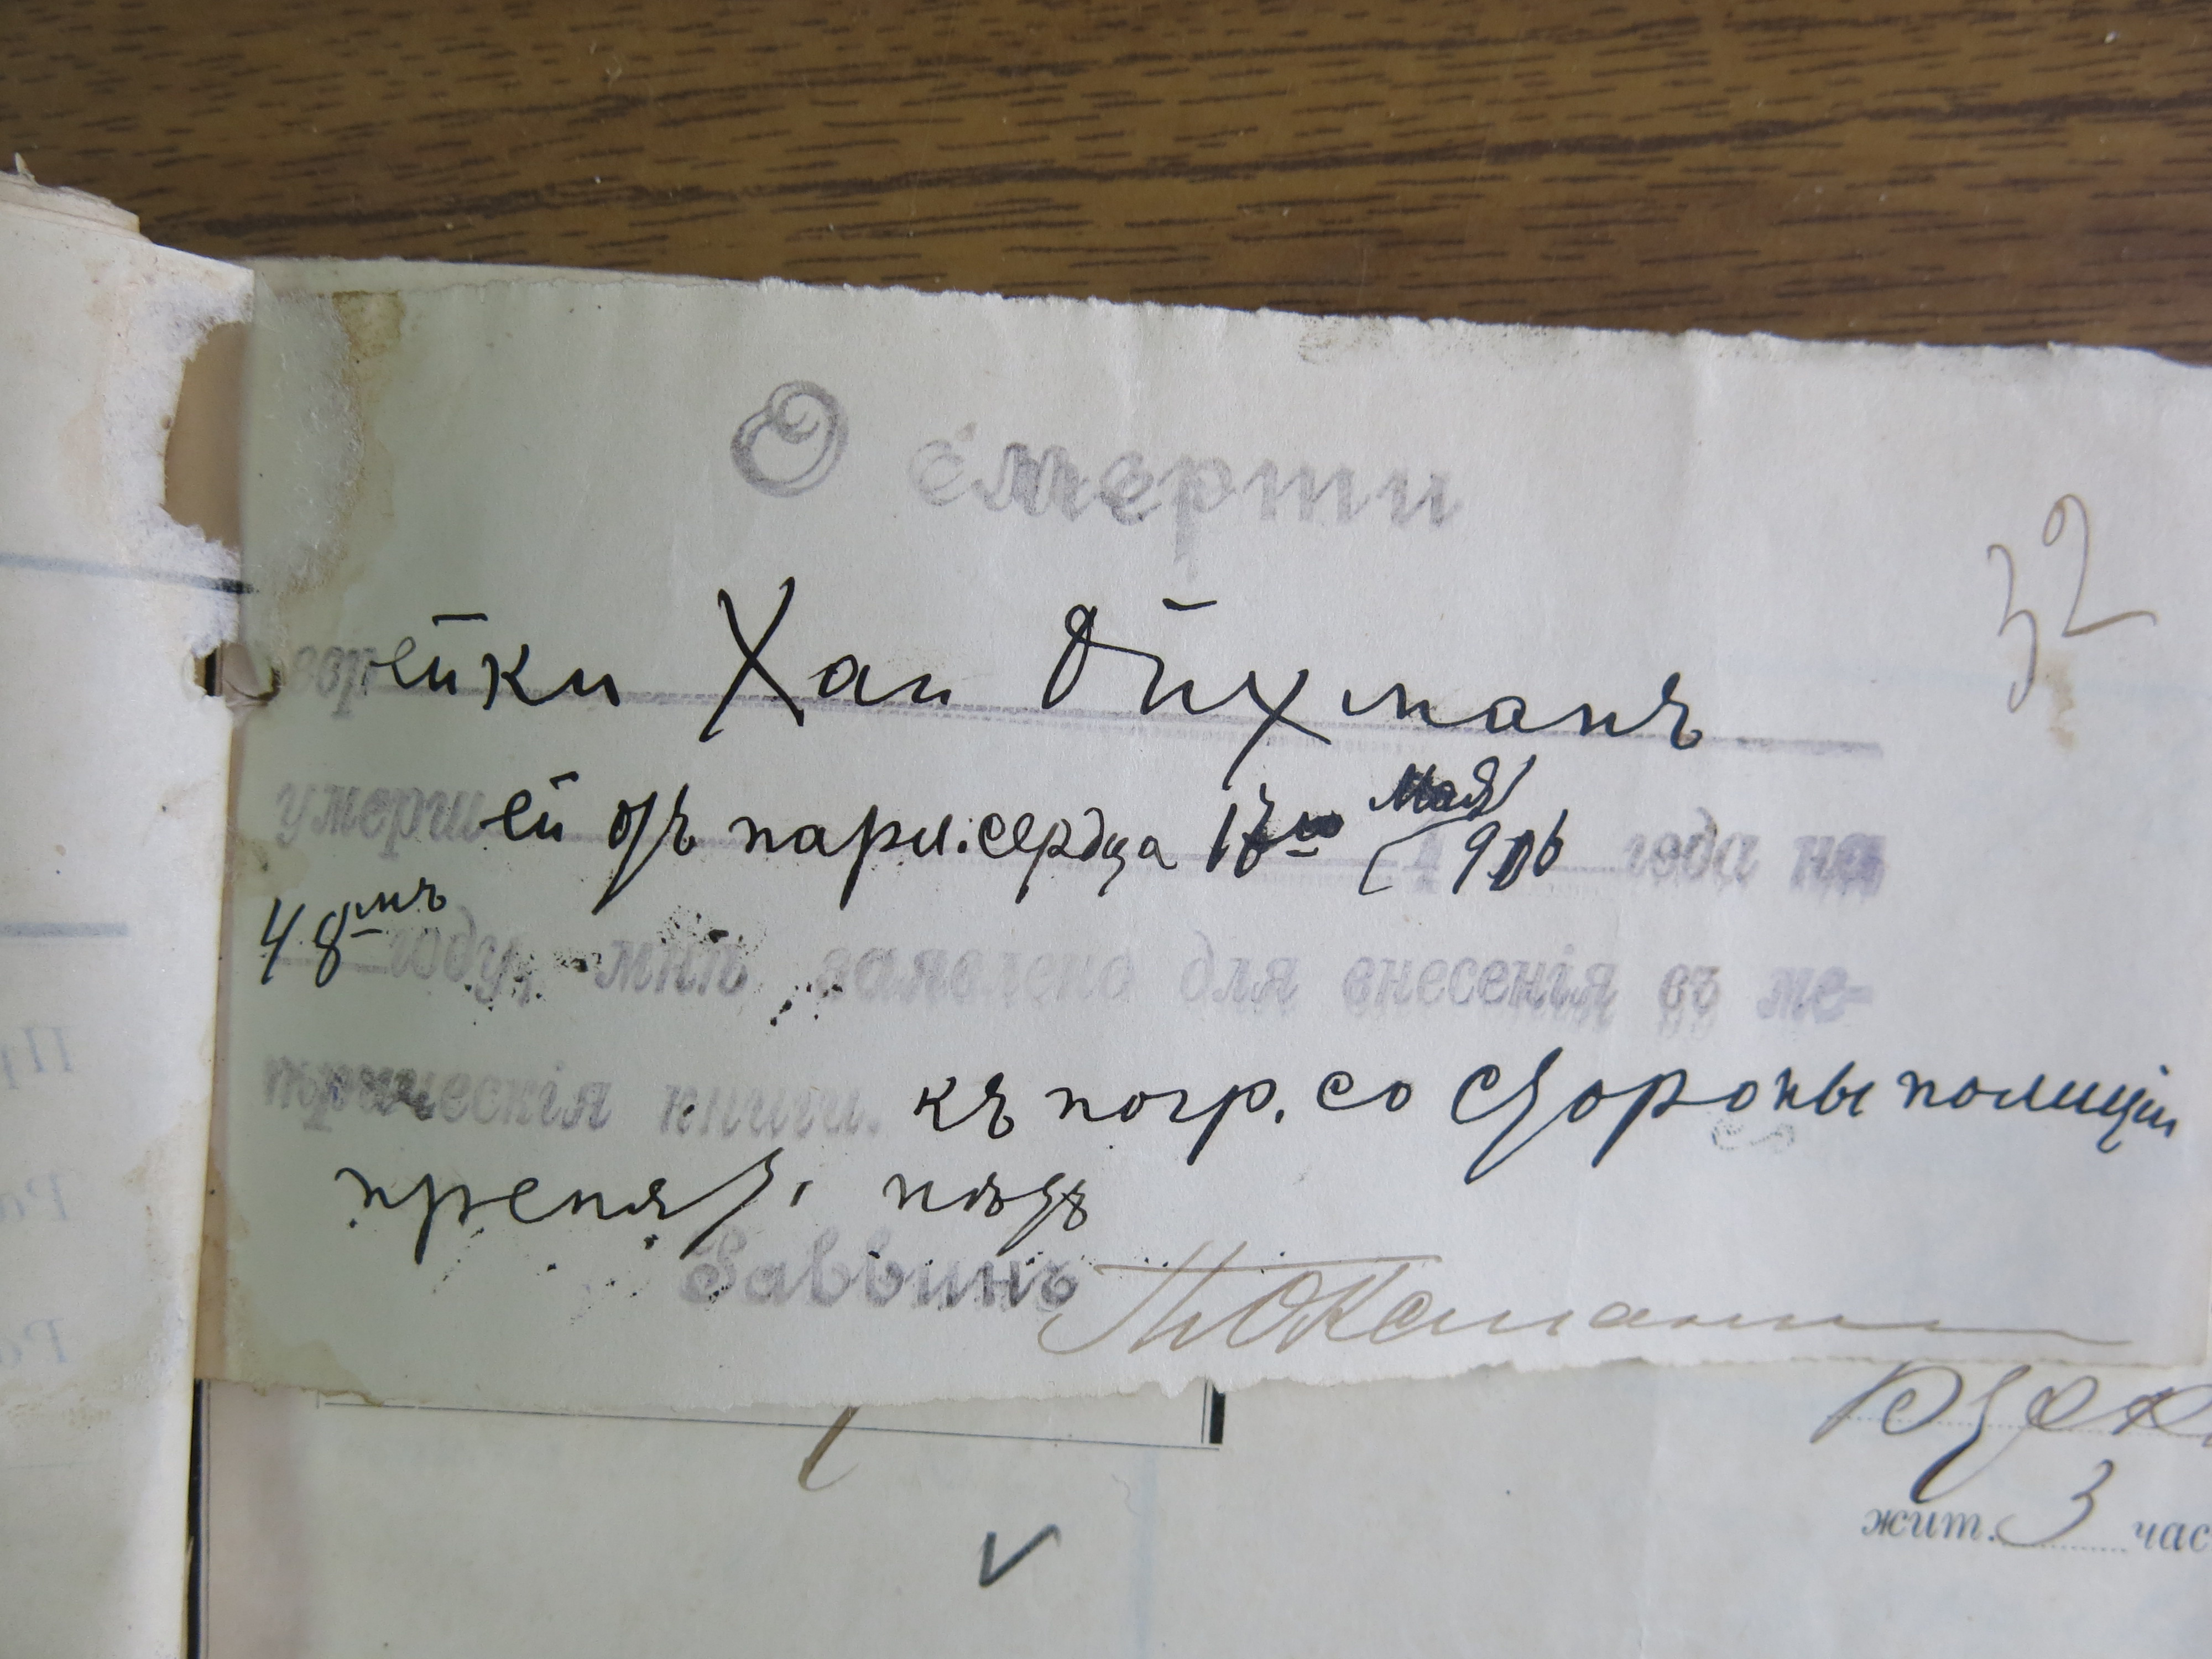 О смерти
32
еврейки Хаи Ойхманъ
умершей отъ парал. сердца 17го Мая 1906 года на
48мъ году, мнѣ заявлено для внесенія въ ме-
трическія книги. къ погр. со стороны полиціи
препят. нѣтъ
Раввинъ
жит. 3 час